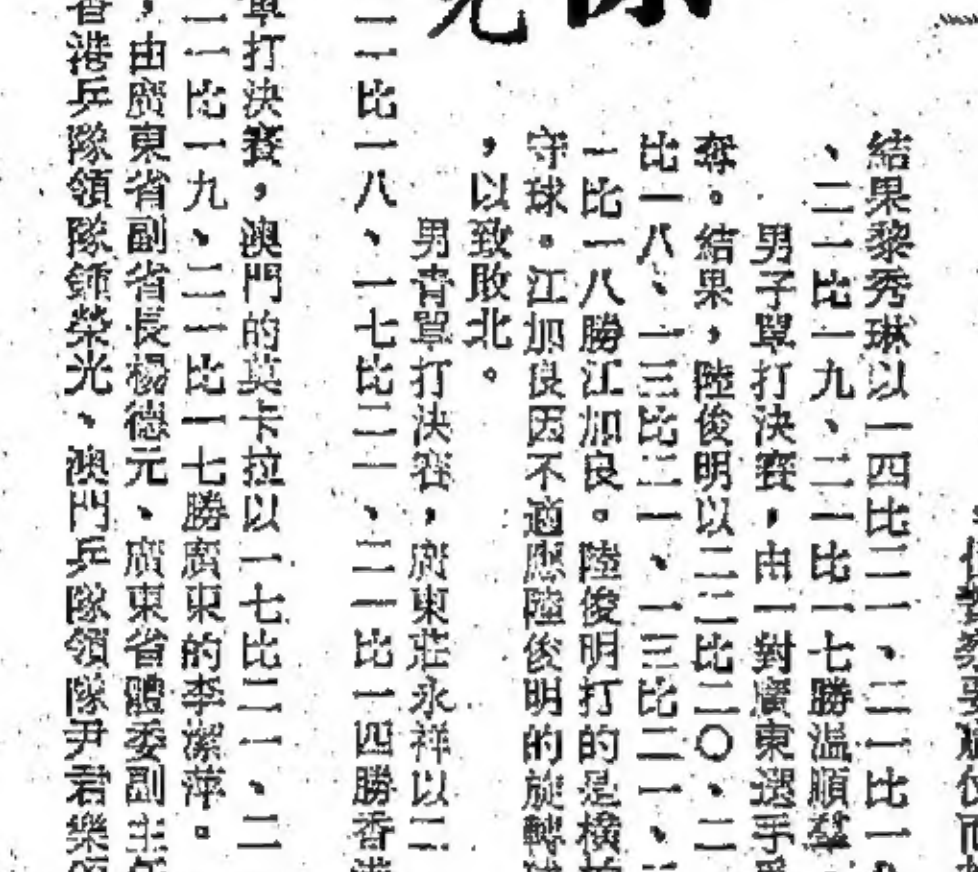 結果黎秀琳以一四比二一、二一比一九
、二一比一九、二一比一七勝溫順
男子單打決賽，由一對廣東選手
奪。結果，陸俊明以二二比二〇、二
比一八、一三比二一、一三比二一、
一比一八勝江加良。陸俊明打的是橫
守球。江加良因不適應陸俊明的旋轉
，以致敗北。
男青單打決賽，廣東莊永祥以二
比一八、一七比二一、二一比一四勝香港
單打決賽，澳門的莫卡拉以一七比二一、二
比一九、二一比一七勝廣東的李潔萍。
，由廣東省副省長楊德元、廣東省體委副主任
香港乒隊領隊鍾榮光、澳門乒隊領隊尹君樂